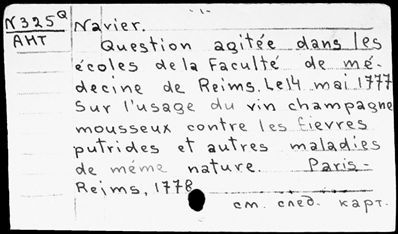 N325Q
АНТ
Navier.
Question agitée dans les
écoles de la Faculté de mé-
decine de Reims. Le 14 mai 1777
Sur l'usage du vin champagne
mousseux contre les fievres
putrides et autres maladies
de méme nature. Paris-
Reims, 1778
см. след. карт.